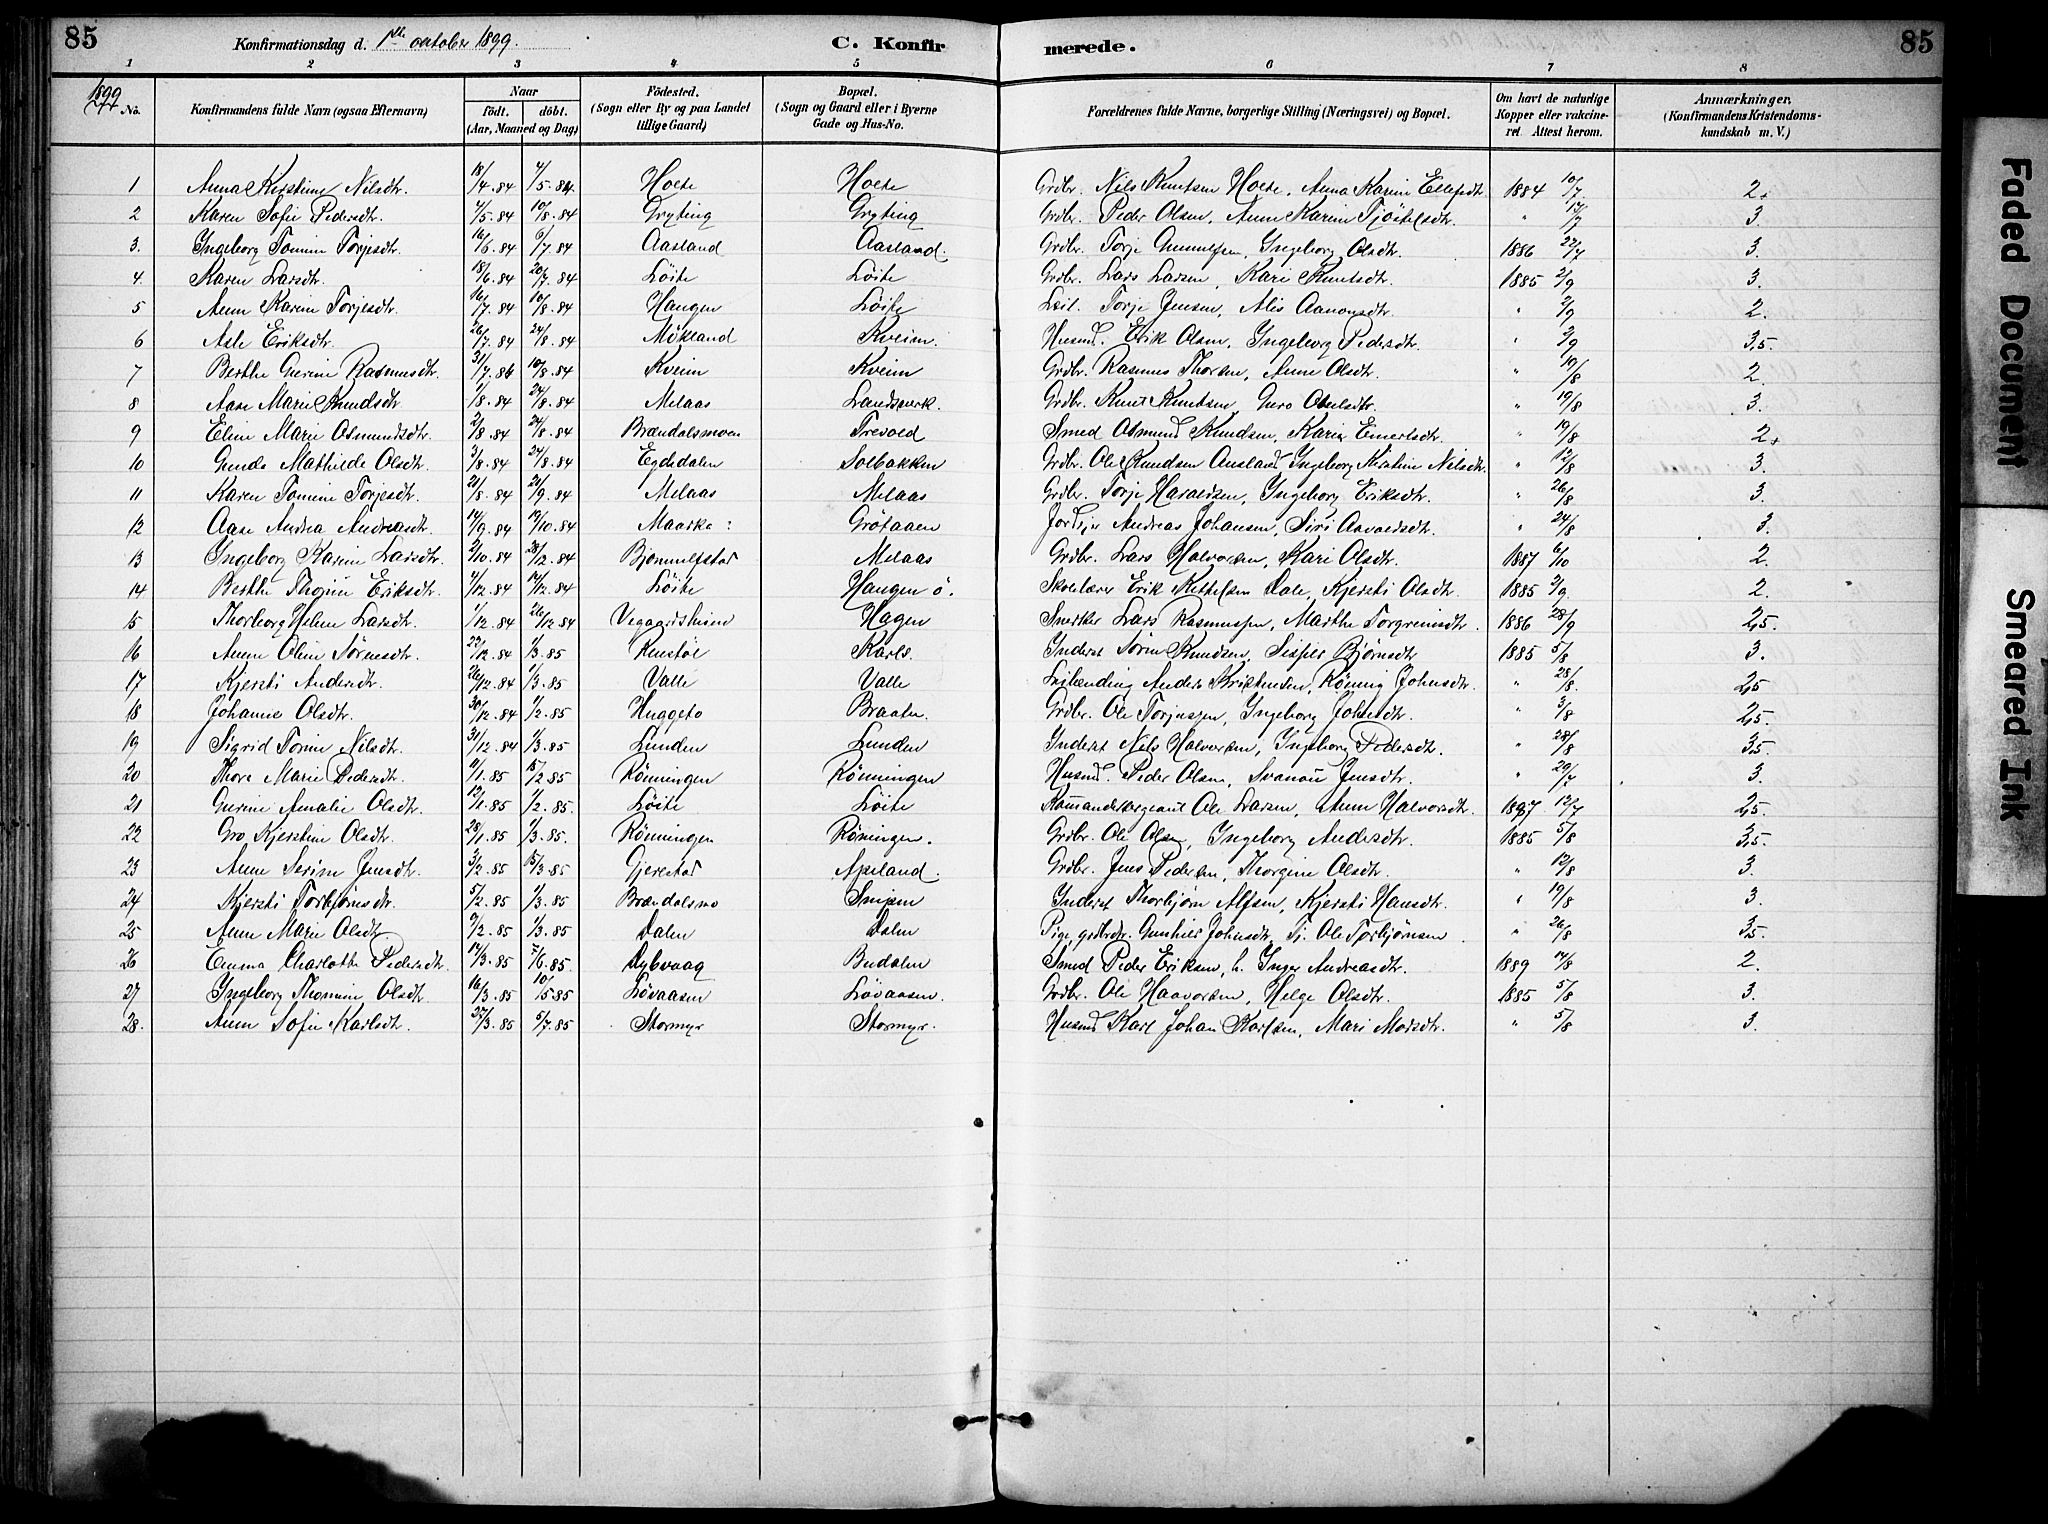 85 Konfirmationsdag d. 1ste october 1899. C. Konfirmerede. 85
1 2 3 4 5 6 7 8
1899 No. Konfirmandens fulde Navn (ogsaa Efternavn) Naar født. døbt. (Aar, Maaned og Dag) Fødested. (Sogn eller By og paa Landet tillige Gaard) Bopæl. (Sogn og Gaard eller i Byerne Gade og Hus-No. Forældrenes fulde Navne, borgerlige Stilling (Næringsvei) og Bopæl. Om havt de naturlige Kopper eller vakcineret. Attest herom. Anmærkninger. (Konfirmandens Kristendomskundskab m. V.)
1 Anna Kirstine Nilsdtr. 18/4.84 4/5.84 Holte Holte Grdbr. Nils Knutsen Holte, Anna Karine Ellefsdtr 1884 10/7 2+
2 Karen Sofie Pedersdtr. 4/5.84 10/8.84 Gryting Gryting Grdbr. Peder Olsen, Anne Karine Tjøstelsdtr. " 17/7 3.
3. Ingeborg Tomine Torjesdtr. 16/6.84 6/7.84 Aasland Aasland. Grdbr. Torje Gunnulfsen, Ingeborg Olsdtr. 1886 22/7 3.
4. Karen Larsdtr. 18/6.84 20/7.84 Löite Löite Grdbr. Lars Larsen, Kari Knutsdtr. 1885 2/9 3.
5 Anne Karine Torjesdtr. 16/7.84 10/8.84 Haugen Löite Leil. Torje Jensen, Alis Aanonsdtr. " 2/9 2.
6 Asle Eriksdtr. 26/7.84 24/8.84 Mökland Kveim. Husmd. Erik Olsen, Ingeborg Pedersdtr. " 2/9 3,5.
7 Berthe Gurine Rasmusdtr. 31/7.84 10/8.84 Kveim Kveim Grdbr. Rasmus Thorsen, Anne Olsdtr. " 19/8 2.
8 Aase Marie Knudsdtr 1/8.84 24/8.84 Melaas Landsverk. Grdbr. Knut Knutsen, Guro Olsdtr. " 19/8 3.
9 Eline Marie Osmundsdtr. 2/8.84 24/8.84 Brændalsmoen Trevold Smed Osmund Knudsen, Karia Einertsdtr. " 19/8 2+
10 Gunda Mathilde Olsdtr. 3/8.84 24/8.84 Egdedalen Solbakken Grdbr. Ole Knudsen Ausland, Ingeborg Kirstine Nilsdtr. " 12/8 3.
11 Karen Tomine Torjesdtr. 21/8.84 21/9.84 Melaas Melaas Grdbr. Torje Haraldsen, Ingeborg Eriksdtr. " 26/8 3.
12 Aase Andrea Andreasdtr. 14/9.84 19/10.84 Maarke: Grötaaen Andreas Johansen, Siri Aavoldsdtr. " 24/8 3.
13 Ingeborg Karine Larsdtr. 2/10.84 28/12.84 Bjonnulfstad Melaas Grdbr. Lars Halvorsen, Kari Olsdtr. 1887 6/10 2.
14 Berthe Thomine Eriksdtr. 4/12.84 14/12.84 Löite Haugen ö. Skolelærer Erik Kittelsen Dale, Kjersti Olsdtr. 1885 2/9. 2.
15 Thorborg Helene Larsdtr. 1/12.84 26/12.84 Vegaardsheien Hagen Snerker Lars Rasmussen, Marthe Torgrimsdtr. 1886 28/9 2,5.
16 Anne Oline Sörensdtr. 22/12.84 1/3.85 Renstöl Karls. Inderst Sörin Knudsen, Sisper Bjørnsdtr 1885 5/8 3.
17 Kjersti Andersdtr. 26/12.84 1/3.85 Valle Valle Leilænding Anders Kristensen, Rönnug Johnsdtr. " 28/8. 2,5
18 Johanne Olsdtr. 30/12.84 1/2.85 Huggeto Braaten. Grdbr. Ole Torjussen, Ingeborg Johnsdtr. " 3/8 2,5.
19 Sigrid Torine Nilsdtr. 31/12.84 1/3.85 Lunden Lunden Inderst Nils Halvorsen, Ingeborg Pedersdtr. " 28/8 3,5.
20 Thora Marie Pedersdtr. 11/1.85 15/2.85 Rönningen Rönningen Husmd. Peder Olsen, Svanau Jensdtr. " 29/7 3.
21 Gurine Amalie Olsdtr. 12/1.85 1/2.85. Löite Löite Komandersergeant Ole Larsen, Anne Halvorsdtr. 1897 12/7 2,5.
22 Gro Kjerstine Olsdtr. 28/1.85 1/3.85. Rönningen Röningen. Grdbr. Ole Olsen, Ingeborg Andersdtr. 1885 5/8 3,5.
23 Anne Serine Jensdtr. 3/2.85 15/3.85 Gjerestad Apeland. Grdbr. Jens Pedersen, Thorgine Olsdtr. " 12/8 3.
24 Kjersti Torbjörnsdtr. 5/2.85 1/3.85. Brændalsmo Snipen Inderst Thorbjörn Alfsen, Kjersti Hansdtr. " 19/8 3.
25 Anne Marie Olsdtr. 9/2.85 1/3.85 Dalen Dalen Pige, grdbrdr. Gunhild Johnsdtr, Tj. Ole Torbjörnsen. " 26/8 3,5.
26 Emma Charlotte Pedersdtr. 14/3.85 7/6.85. Dybvaag Budalen Smed Peder Eriksen, h. Inger Andreasdtr. 1889 14/8 2.
27 Ingeborg Thomine Olsdtr 16/3.85 10/5 85 Lövaasen Lövaasen. Grdbr. Ole Haavorsen, Helge Olsdtr. 1885 5/8 3.
28. Anne Sofie Karlsdtr. 27/3.85 5/7.85 Stormyr Stormyr. Husmd Karl Johan Karlsen, Mari Mosdtr. " 5/8 3.
Faded Document
Smeared Ink